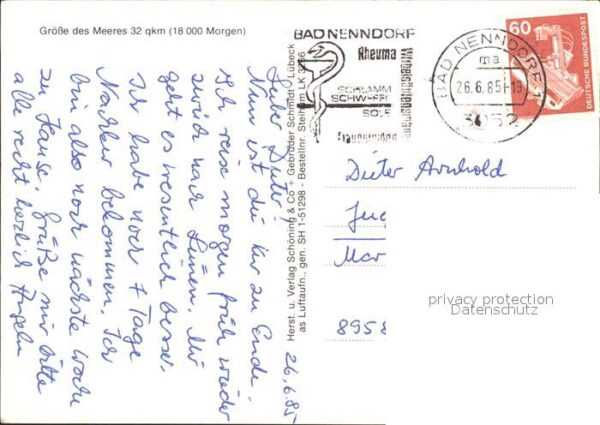 Größe des Meeres 32 qkm (18 000 Morgen)
Lieber Dieter!
Nun ist die Kur zu Ende.
Ich reise morgen früh wieder
zurück nach Lünen. Mir
geht es wesentlich besser.
Ich habe noch 7 Tage
Nachkur bekommen. Ich
bin also noch nächste Woche
zu Hause. Grüße mir bitte
alle recht herzlich
26.6.85
Herst. u. Verlag Schöning & Co + Gebrüder Schmidt, Lübeck
as Luftaufn., gen. SH 1-51298 - Bestellnr. Steinh
BAD NENNDORF
Rheuma
Wirbelsäulenerkrankungen
SCHLAMM
SCHWEFEL
SOLE
Frauenleiden
BAD NENNDORF
ma
26.6.85-19
3052
60
DEUTSCHE BUNDESPOST
Dieter Arnhold
8958
privacy protection
Datenschutz